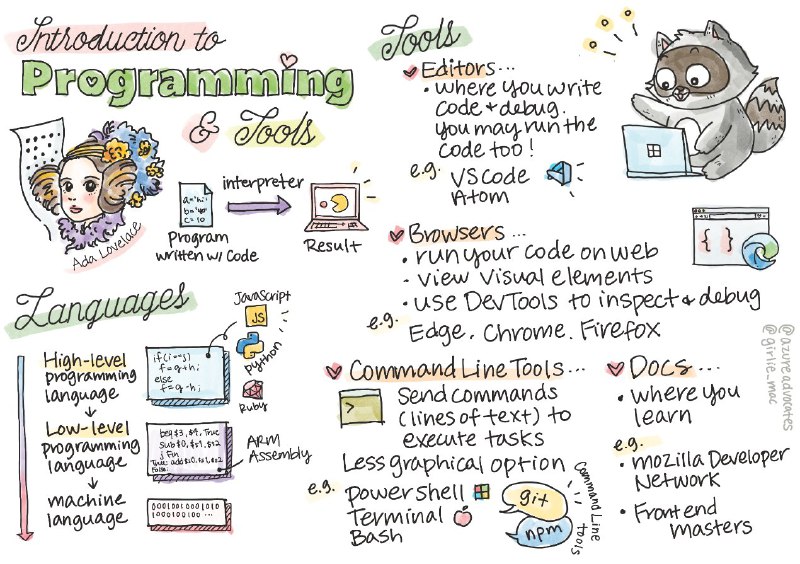 Introduction to
Programming
& Tools
Ada Lovelace
a='hi;
c=10
Program
written w/ Code
interpreter
Result
Languages
High-level
programming
language
Low-level
programming
language
machine
language
if(i==j)
f=g+h;
else
f=g-h;
JavaScript
JS
Python
Ruby
ARM
Assembly
00010010001010
1000100100 ...
Tools
Editors...
• where you write
code & debug.
You may run the
code too!
e.g.
VS code
Atom
Browsers ...
• run your code on web
• view visual elements
• use DevTools to inspect & debug
e.g.
Edge, Chrome, Firefox
{ }
Command Line Tools ...
>
Send commands
(lines of text) to
execute tasks
Less graphical option
e.g.
powershell
Terminal
Bash
git
npm
command Line
tools
Docs...
• where you
learn
e.g.
• mozilla Developer
Network
• Frontend
masters
@azureadvocates
@girlie_mac